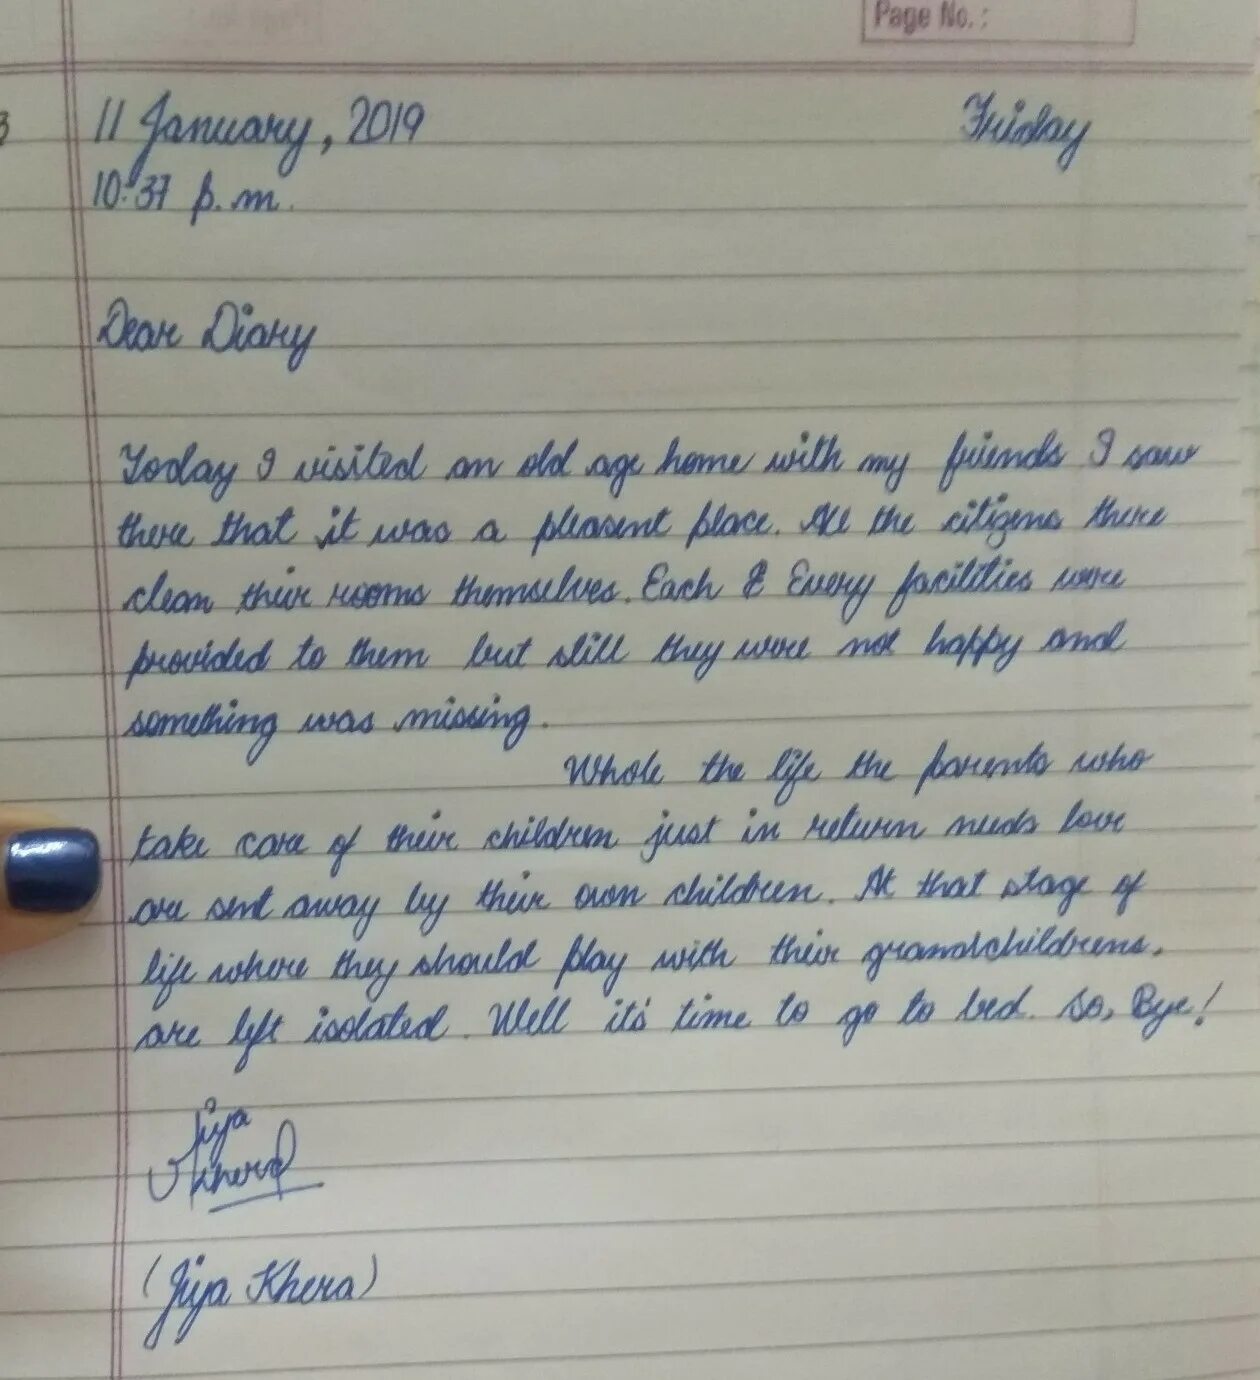 Page No.:
11 January, 2019 Friday
10:37 p.m.
Dear Diary
Today I visited an old age home with my friends I saw
there that it was a pleasent place. All the citizens there
clean their rooms themselves. Each & Every facilities were
provided to them but still they were not happy and
something was missing.
Whole the life the parents who
take care of their children just in return needs love
are sent away by their own children. At that stage of
life where they should play with their grandchildrens.
are left isolated. Well it's time to go to bed. So, Bye!
Jiya
Khera
(Jiya Khera)